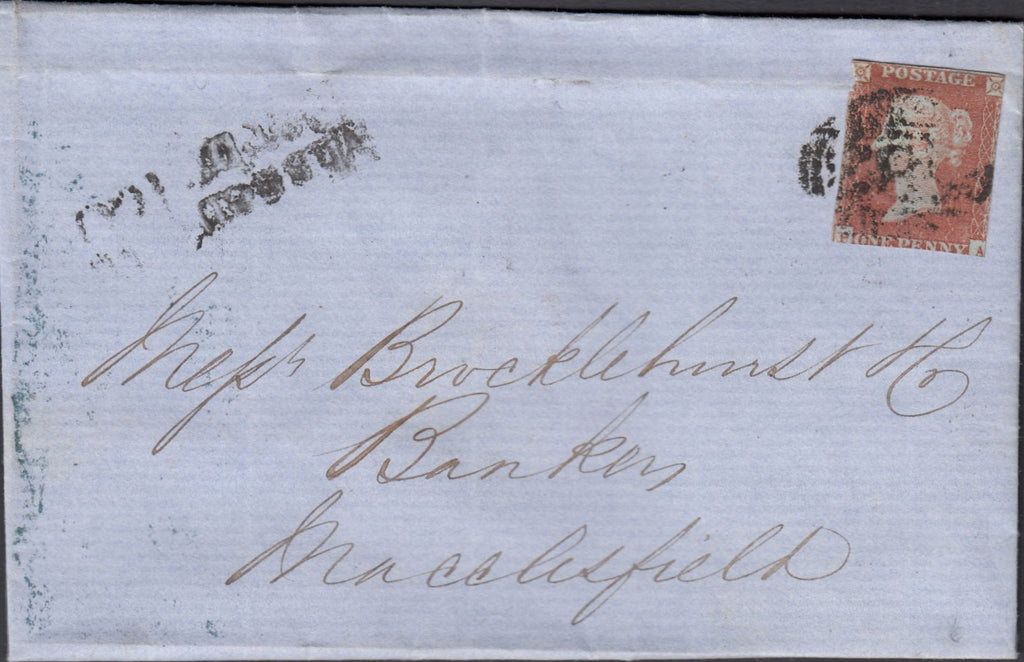 POSTAGE
ONE PENNY A
Messrs Brocklehurst & Co
Bankers
Macclesfield